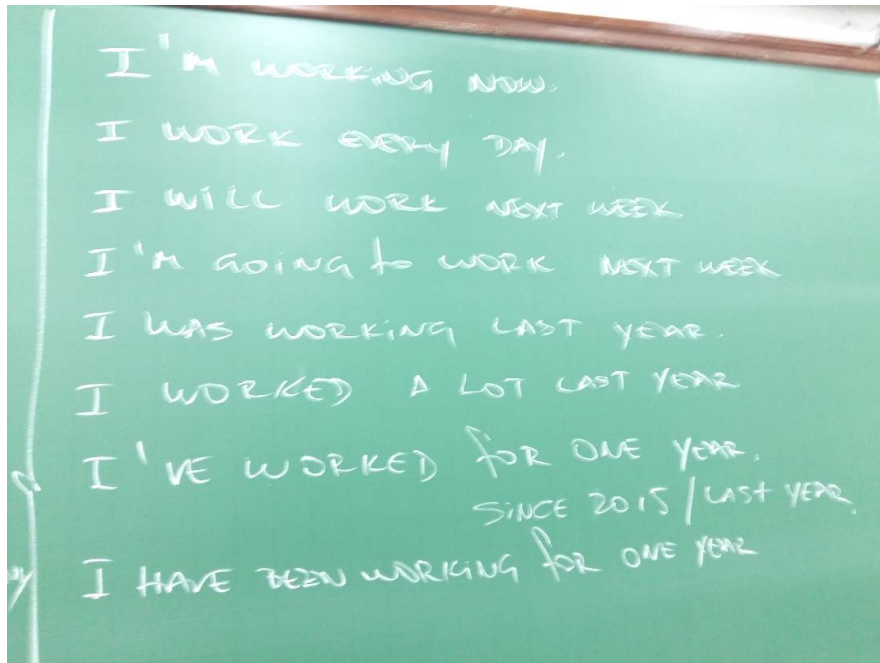 I'M WORKING NOW.
I WORK EVERY DAY.
I WILL WORK NEXT WEEK
I'M GOING to WORK NEXT WEEK
I WAS WORKING LAST YEAR.
I WORKED A LOT LAST YEAR
I'VE WORKED for ONE YEAR.
SINCE 2015 / LAST YEAR.
I HAVE BEEN WORKING for ONE YEAR